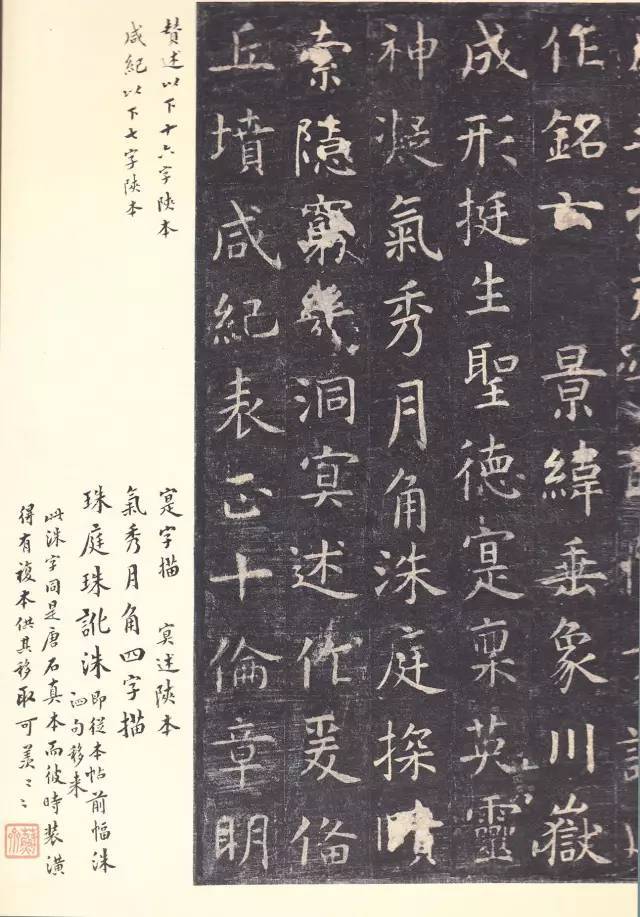 作銘云 景緯垂象川嶽
成形挺生聖德寔稟英靈
神凝氣秀月角洙庭探賾
索隱窮幾洞冥述作爰俻
丘墳咸紀表正十倫章明
賛述以下十六字陝本
咸紀以下七字陝本
寔字描 冥述陝本
氣秀月角四字描
珠庭珠訛洙即從本帖前幅洙
泗句移来
此洙字同是唐石真本而彼時装潢
得有複本供其移取可羡〻